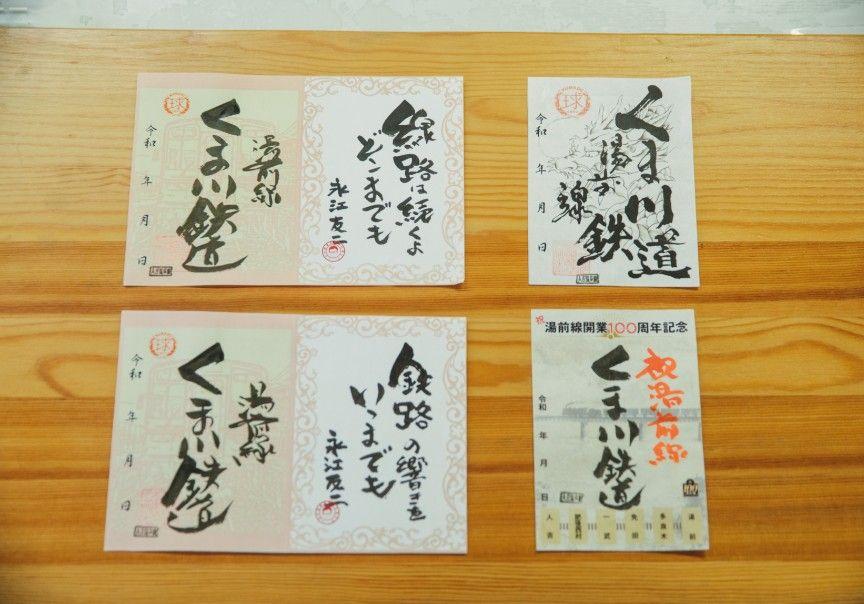 球
湯前線
くま川鉄道
令和 年 月 日
線路は続くよ
どこまでも
永江友二
球
くま川鉄道
湯前線
令和 年 月 日
球
湯前線
くま川鉄道
令和 年 月 日
鉄路の響きを
いつまでも
永江友二
祝
湯前線開業100周年記念
祝湯前線
くま川鉄道
令和 年 月 日
人吉
肥後西村
一武
免田
多良木
湯前